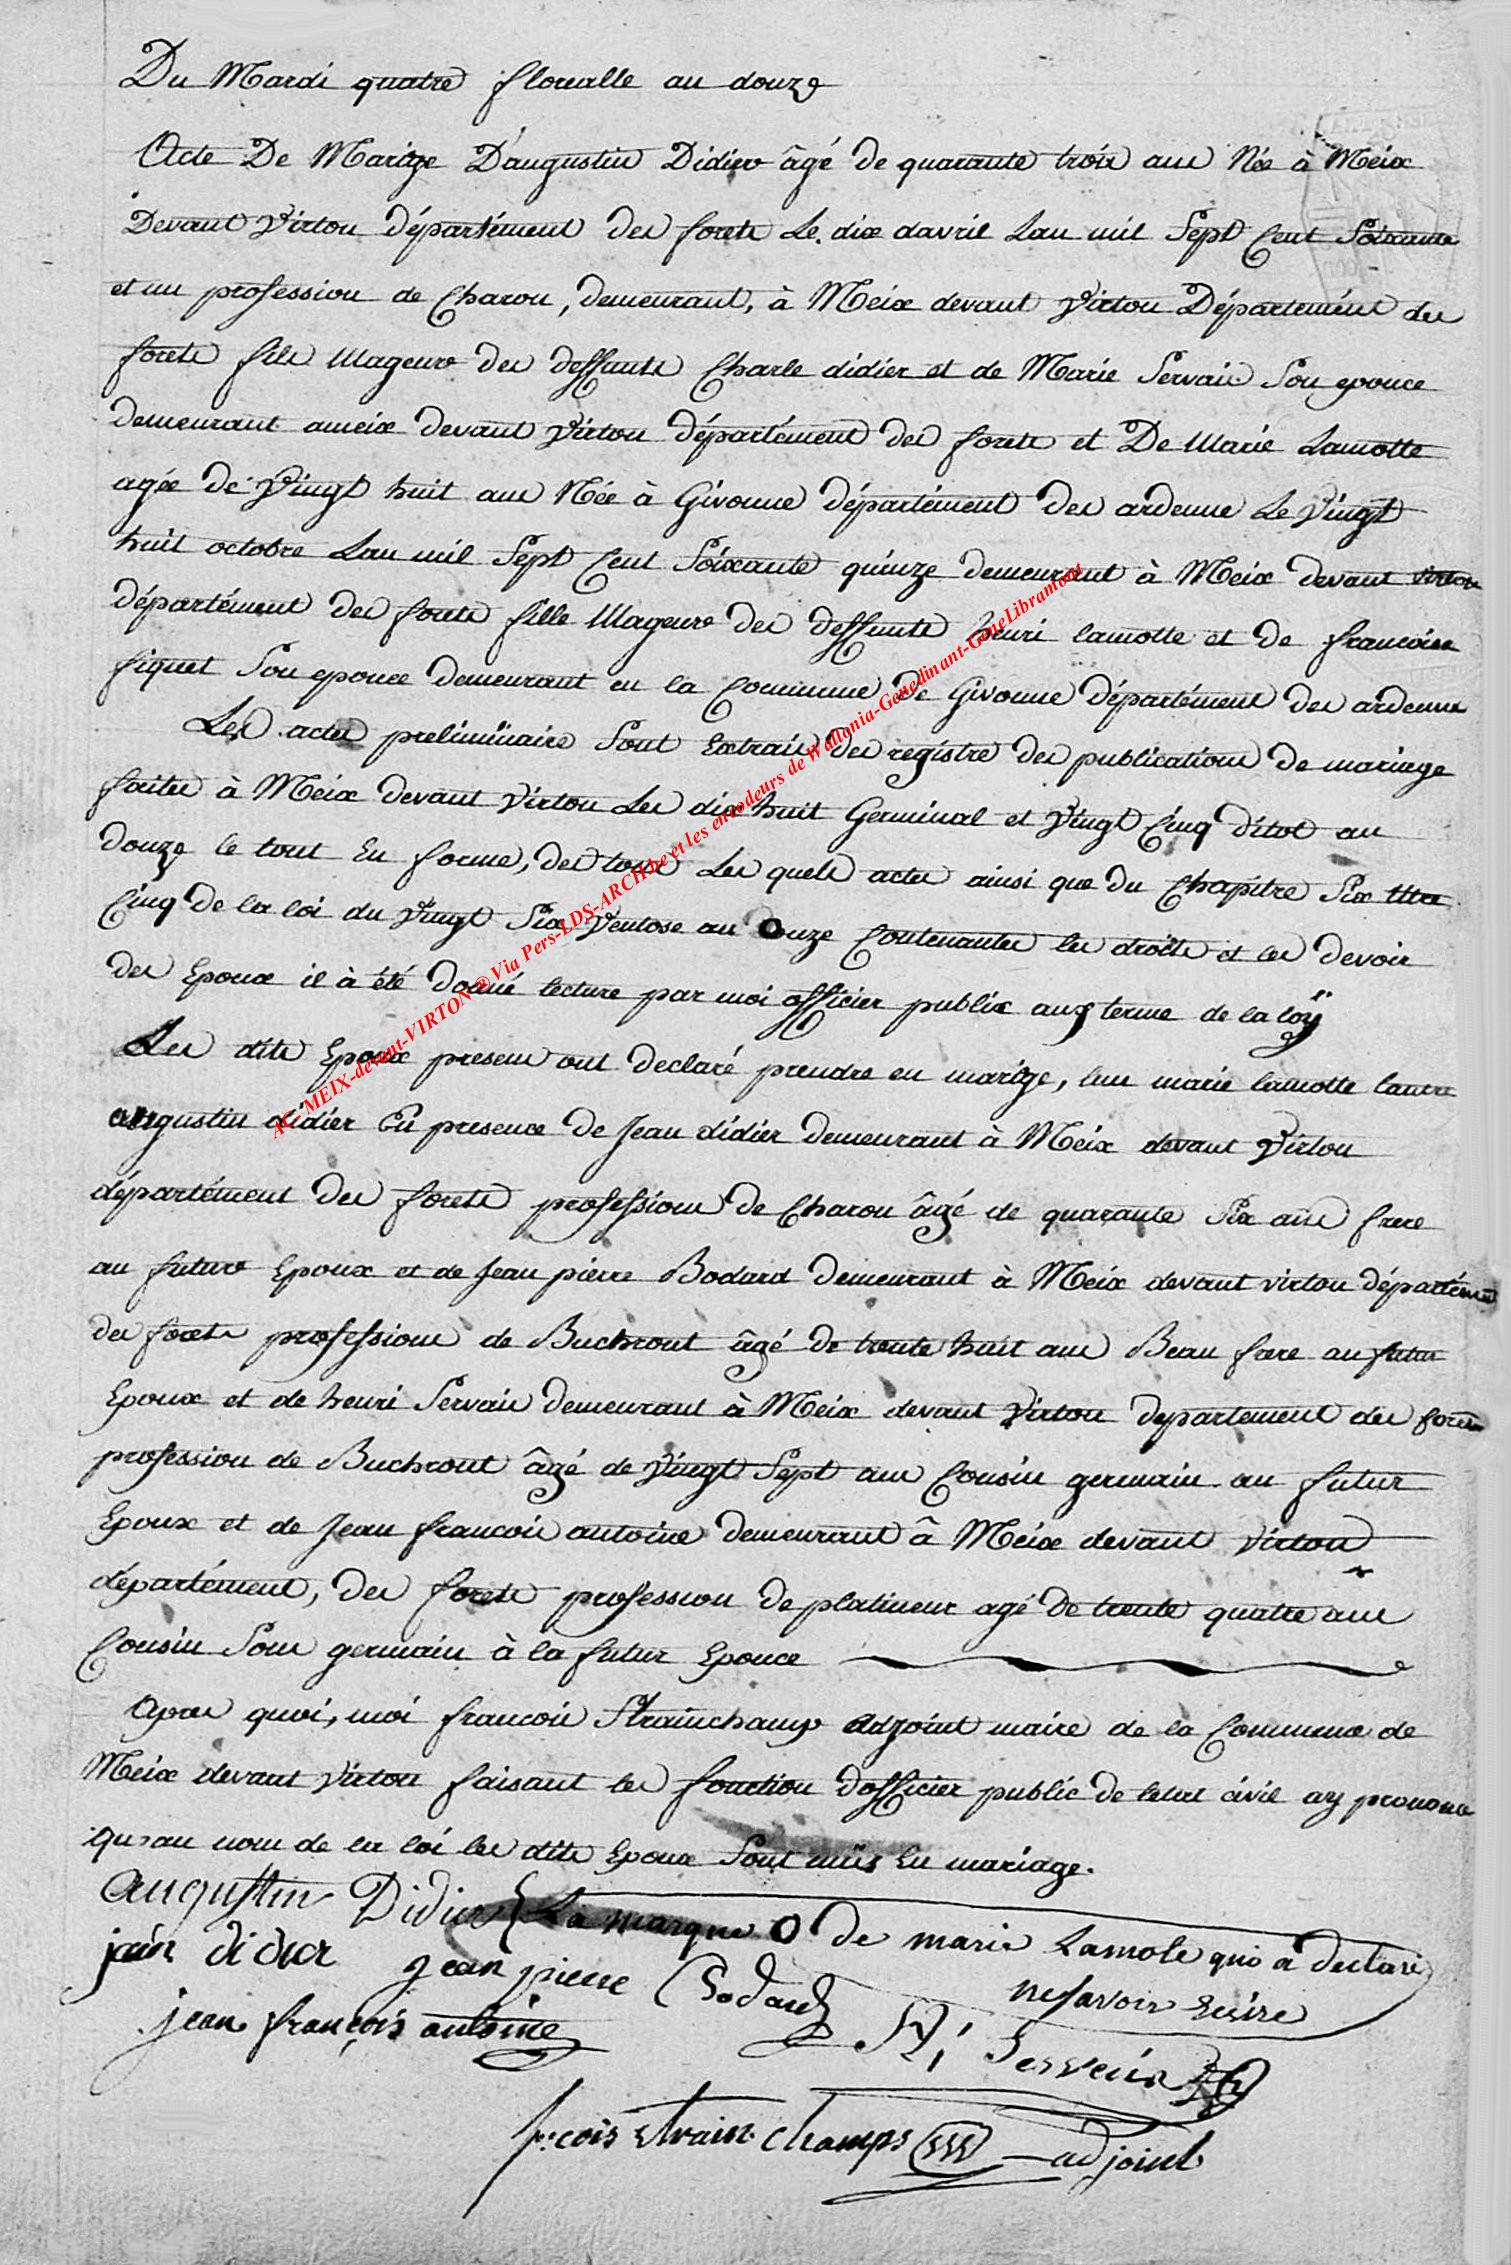 Du Mardi quatre florealle an douze
Acte De Mariage D'augustin Didier âgé de quarante trois ans Née à Meix
Devant Virton département des forets Le dix davril Lan mil Sept Cent Soixante
et un profession de Charon, demeurant, à Meix devant Virton Département des
forets fils Mageure des deffunts Charle didier et de Marie Servais Son epouce
demeurant ameix devant Virton département des forets et De Marie Lamotte
agée de Vingt huit ans Née à Givonne département des ardenne Le Vingt
huit octobre Lan mil Sept Cent Soixante quinze demeurant à Meix devant virton
département des forets fille Mageure des deffunts henri lamotte et de francoise
fiquet Son epouce demeurant en la Commune De Givonne département des ardenne
Les actes preliminaire Sont Extrais des registre des publications De mariage
faites à Meix devant Virton Les dix huit Germinal et Vingt Cinq ditot an
douze le tout En forme, de tous Les quels actes ainsi que du Chapitre Six titre
Cinq De la loi du Vingt Six Ventose an Onze Contenantes les droits et les devoir
des Epoux il à été donné lecture par moi officier public aux terme de la loÿ
Les dits Epoux presens ont declaré prendre en mariage, lun marie lamotte lautre
augustin didier En presence De Jean didier demeurant à Meix devant Virton
département des forets profession De Charon âgé de quarante Six ans frere
au future Epoux et de Jean pierre Bodard demeurant à Meix devant virton département
des forets profession de Buchront âgé de trente huit ans Beau frere au futur
Epoux et de henri Servais demeurant à Meix devant Virton departement des forets
profession de Buchront âgé de Vingt Sept ans Cousin germain au futur
Epoux et de Jean francois antoine demeurant à Meix devant Virton
département, des forets profession De platineur agé De trente quatre ans
Cousin Sous germain à la futur Epouce
Apres quoi, moi francois Strainchamp adjoint maire de la Commune de
Meix devant Virton faisant les fonction dofficier public de letat civil ay prononce
qu'au nom de la loi les dits Epoux Sont unis En mariage.
augustin Didier La marque O de marie Lamote qui a declare
ne savoir Ecrire
jain didier jean pierre Bodard
jean françois antoine H Servais
f.cois strainchamps adjoint
AC MEIX-devant-VIRTON ® Via Pers-LDS-ARCH.be et les encodeurs de Wallonia-Genedinant-GeneLibramont